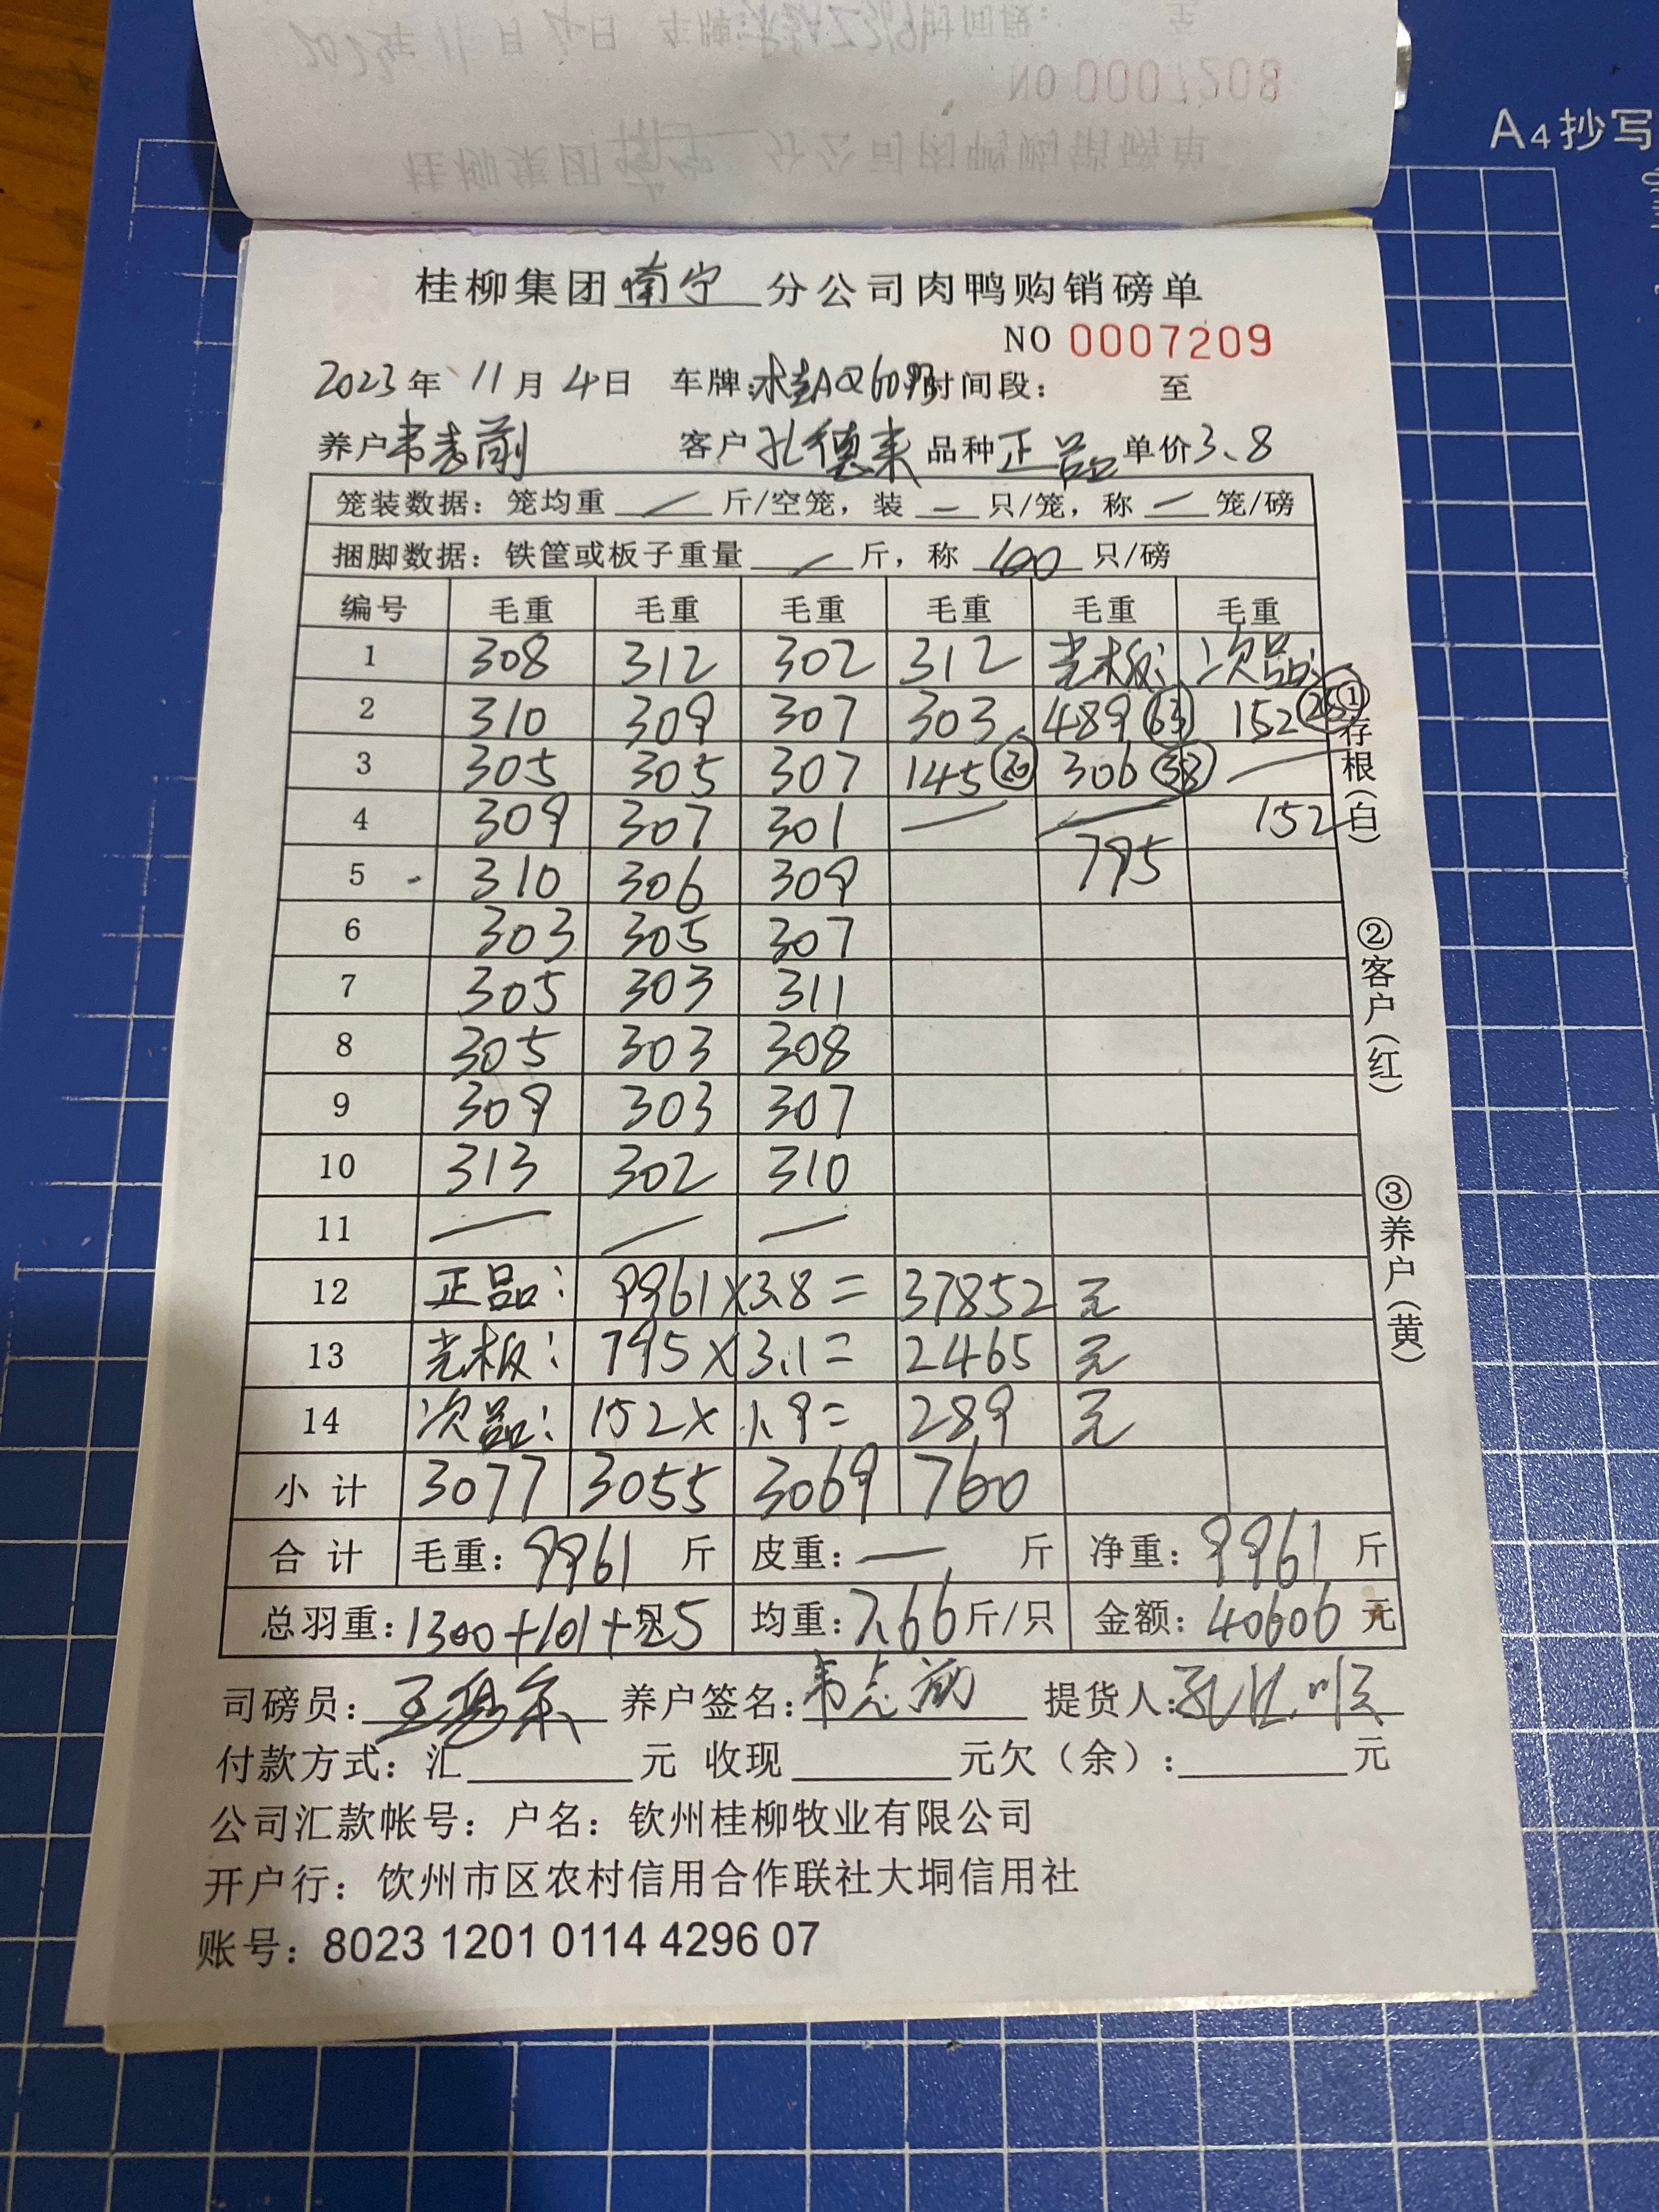 A4抄写
NO 0007208
桂柳集团南宁分公司肉鸭购销磅单
桂柳集团南宁分公司肉鸭购销磅单
NO 0007209
2023年 11月 4日 车牌: 时间段: 至
养户 客户 孔德来 品种 正品 单价 3.8
笼装数据: 笼均重 — 斤/空笼, 装 — 只/笼, 称 — 笼/磅
捆脚数据: 铁筐或板子重量 — 斤, 称 100 只/磅
编号 毛重 毛重 毛重 毛重 毛重 毛重
1 308 312 302 312 光板: 次品:
2 310 309 307 303 489 63 152 25
3 305 305 307 145 20 306 38 —
4 309 307 301 — — 152
5 310 306 309 795
6 303 305 307
7 305 303 311
8 305 303 308
9 309 303 307
10 313 302 310
11 — — —
12 正品: 9961×3.8= 37852 元
13 光板: 795×3.1= 2465 元
14 次品: 152×1.9= 289 元
小计 3077 3055 3069 760
合计 毛重: 9961 斤 皮重: — 斤 净重: 9961 斤
总羽重: 1300+101+25 只 均重: 7.66 斤/只 金额: 40606 元
①存根(白)
②客户(红)
③养户(黄)
司磅员: 养户签名: 提货人:
付款方式: 汇 元 收现 元欠(余): 元
公司汇款帐号: 户名: 钦州桂柳牧业有限公司
开户行: 钦州市区农村信用合作联社大垌信用社
账号: 8023 1201 0114 4296 07